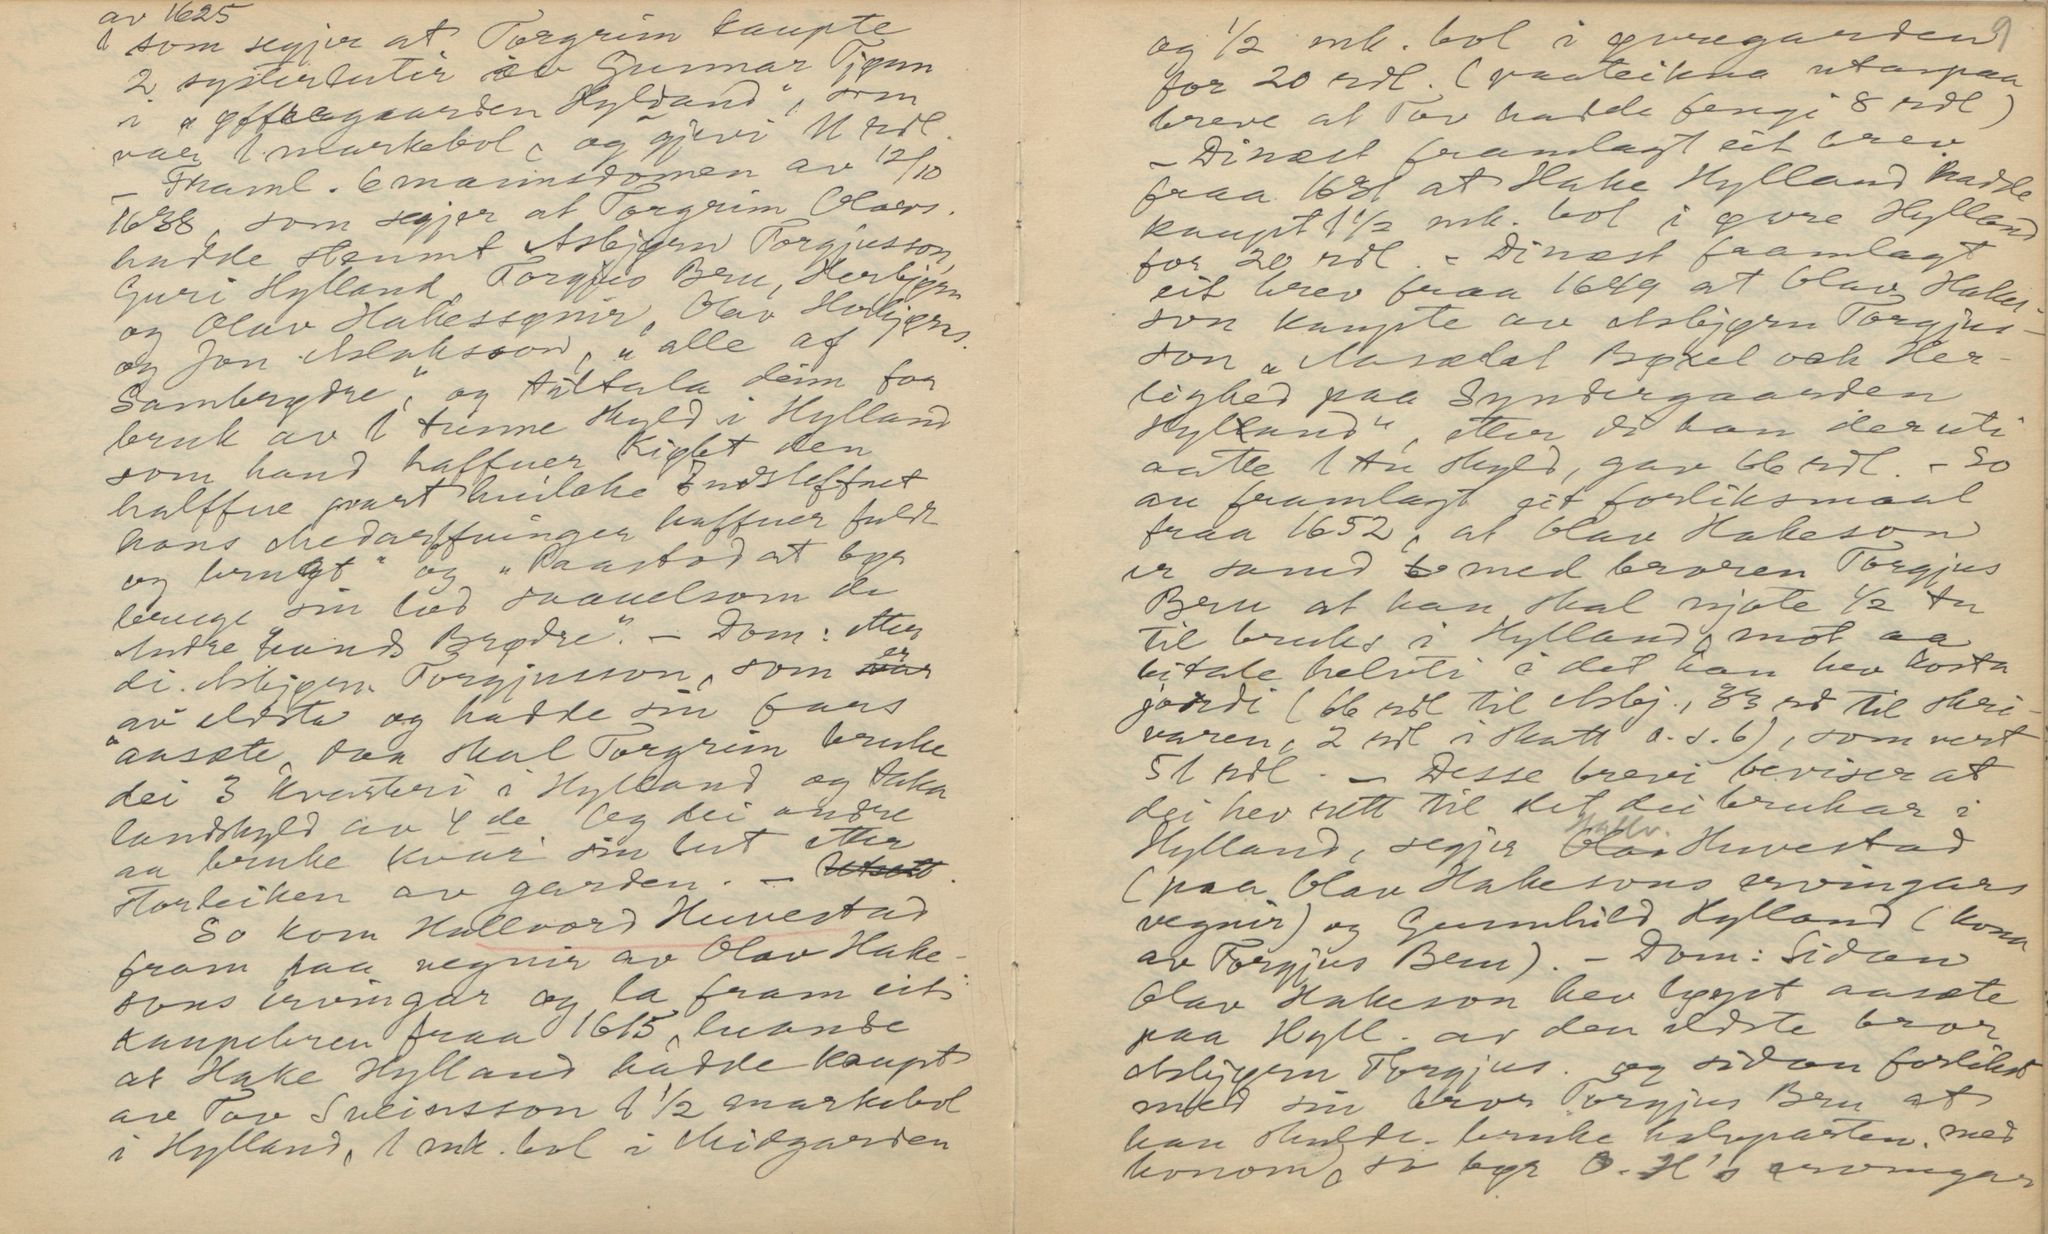 av 1625
som segjer at Torgrim kaupte
2 systerlutir av Gunnar Tjønn
i "øffregaarden Hyldand", som
var 1 markebol, og gjevi 11 rdl.
– Framl. 6 mannsdomen av 12/10
1638, som segjer at Torgrim Olavs.
hadde stemnt Asbjørn Torgjusson,
Guri Hylland, Torgjus Bru, Herbjørn
og Olav Hakessønir, Olav Herbjørns.
og Jon Aslaksson, "alle af
Sambrødre", og tiltala deim for
bruk av 1 tunne skyld i Hylland
som hand haffuer Kiøbt den
halffue part huilche
hans Medarffuinger haffuer fuldt
og brugt" og "Paastod at bør
bruge sin lod saauelsom de
Andre hands Brødre". – Dom: etter
di Asbjørn Torgjusson, som er
av eldste og hadde sin fars
aasæte, daa skal Torgrim bruke
dei 3 kvarteri i Hylland og taka
landskyld av 4de. Og dei andre
aa bruke kvar sin lut etter
storleiken av garden. –
So kom Hallvord Huvestad
fram paa vegnir av Olav Hake-
sons ervingar og la fram eit
kaupebrev fraa 1615, ljuande
at Hake Hylland hadde kaupt
av Tov Sveinsson 1 1/2 markebol
i Hylland, 1 mk. bol i Midgarden
9
og 1/2 mk. bol i øvregarden
for 20 rdl. (paateikna utanpaa
breve at Tov hadde fengi 8 rdl)
– Dinæst framlagt eit brev
fraa 1631 at Hake Hylland hadde
kaupt 1 1/2 mk. bol i øvre Hylland
for 20 rdl. – Dinæst framlagt
eit brev fraa 1649 at Olav Hake-
son kaupte av Asbjørn Torgjus-
son "Aasædet Bøxel och Her-
lighed paa Syndergaarden
Hylland", etter di han deruti
aatte 1 tn skyld, gav 66 rdl. – So
au framlagt eit forliksmaal
fraa 1652, at Olav Hakeson
er samd med broren Torgjus
Bru at han skal njote 1/2 tn
til bruks i Hylland, mot aa
bitale helvti i det han hev kosta
jordi (66 rdl til Asbj., 33 rd til skri-
varen, 2 rdl i skatt o.s.b), som vert
51 rdl. – Desse brevi beviser at
dei hev rett til det dei brukar i
Hylland, segjer Hallv. Huvestad
(paa Olav Hakesons ervingars
vegnir) og Gunnhild Hylland (kona
av Torgjus Bru). – Dom: Sidan
Olav Hakeson hev løyst aasæte
paa Hyll. av den eldste bror
Asbjørn Torgjus. og sidan forlikst
med sin bror Torgjus Bru at
han skulde bruke halvparten med
honom, so bør O. H's ervingar